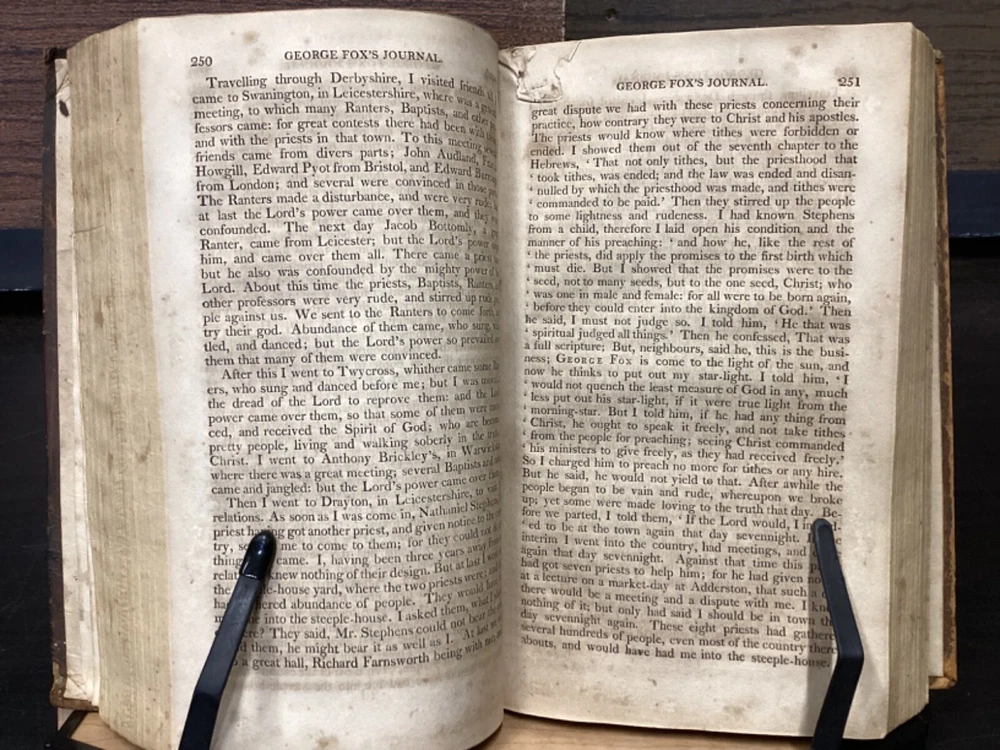 250 GEORGE FOX'S JOURNAL.
Travelling through Derbyshire, I visited friends
came to Swanington, in Leicestershire, where was a
meeting, to which many Ranters, Baptists, and other
fessors came: for great contests there had been with
and with the priests in that town. To this meeting
friends came from divers parts; John Audland,
Howgill, Edward Pyot from Bristol, and Edward
from London; and several were convinced in those
The Ranters made a disturbance, and were very rude;
at last the Lord's power came over them, and they
confounded. The next day Jacob Bottomly, a
Ranter, came from Leicester; but the Lord's power
him, and came over them all. There came a priest
but he also was confounded by the mighty power of
Lord. About this time the priests, Baptists, Ranters,
other professors were very rude, and stirred up rude
ple against us. We sent to the Ranters to come forth,
try their god. Abundance of them came, who sung,
tled, and danced; but the Lord's power so prevailed
them that many of them were convinced.
After this I went to Twycross, whither came some
ers, who sung and danced before me; but I was
the dread of the Lord to reprove them: and the
power came over them, so that some of them were
ced, and received the Spirit of God; who are
pretty people, living and walking soberly in the
Christ. I went to Anthony Brickley's, in
where there was a great meeting; several Baptists
came and jangled: but the Lord's power came over
Then I went to Drayton, in Leicestershire, to
relations. As soon as I was come in, Nathaniel
priest having got another priest, and given notice to the
try, me to come to them; for they could not
thing came. I, having been three years away
knew nothing of their design. But at last I
the house yard, where the two priests were;
abundance of people. They would
me into the steeple-house. I asked them, what
They said, Mr. Stephens could not bear
them, he might bear it as well as I. At last
a great hall, Richard Farnsworth being with
GEORGE FOX'S JOURNAL. 251
great dispute we had with these priests concerning their
practice, how contrary they were to Christ and his apostles.
The priests would know where tithes were forbidden or
ended. I showed them out of the seventh chapter to the
Hebrews, ‘ That not only tithes, but the priesthood that
‘ took tithes, was ended; and the law was ended and disan-
‘ nulled by which the priesthood was made, and tithes were
‘ commanded to be paid.’ Then they stirred up the people
to some lightness and rudeness. I had known Stephens
from a child, therefore I laid open his condition and the
manner of his preaching: ‘ and how he, like the rest of
‘ the priests, did apply the promises to the first birth which
‘ must die. But I showed that the promises were to the
‘ seed, not to many seeds, but to the one seed, Christ; who
‘ was one in male and female: for all were to be born again,
‘ before they could enter into the kingdom of God.’ Then
he said, I must not judge so. I told him, ‘ He that was
‘ spiritual judged all things.’ Then he confessed, That was
a full scripture; But, neighbours, said he, this is the busi-
ness; GEORGE FOX is come to the light of the sun, and
now he thinks to put out my star-light. I told him, ‘ I
‘ would not quench the least measure of God in any, much
‘ less put out his star-light, if it were true light from the
‘ morning-star. But I told him, if he had any thing from
‘ Christ, he ought to speak it freely, and not take tithes
‘ from the people for preaching; seeing Christ commanded
‘ his ministers to give freely, as they had received freely.’
So I charged him to preach no more for tithes or any hire.
But he said, he would not yield to that. After awhile the
people began to be vain and rude, whereupon we broke
up; yet some were made loving to the truth that day. Be-
fore we parted, I told them, ‘ If the Lord would, I
‘ ed to be at the town again that day sevennight.
interim I went into the country, had meetings, and
again that day sevennight. Against that time this
had got seven priests to help him; for he had given
at a lecture on a market-day at Adderston, that such a
there would be a meeting and a dispute with me. I
nothing of it; but only had said I should be in town
day sevennight again. These eight priests had
several hundreds of people, even most of the country there
abouts, and would have had me into the steeple-house.